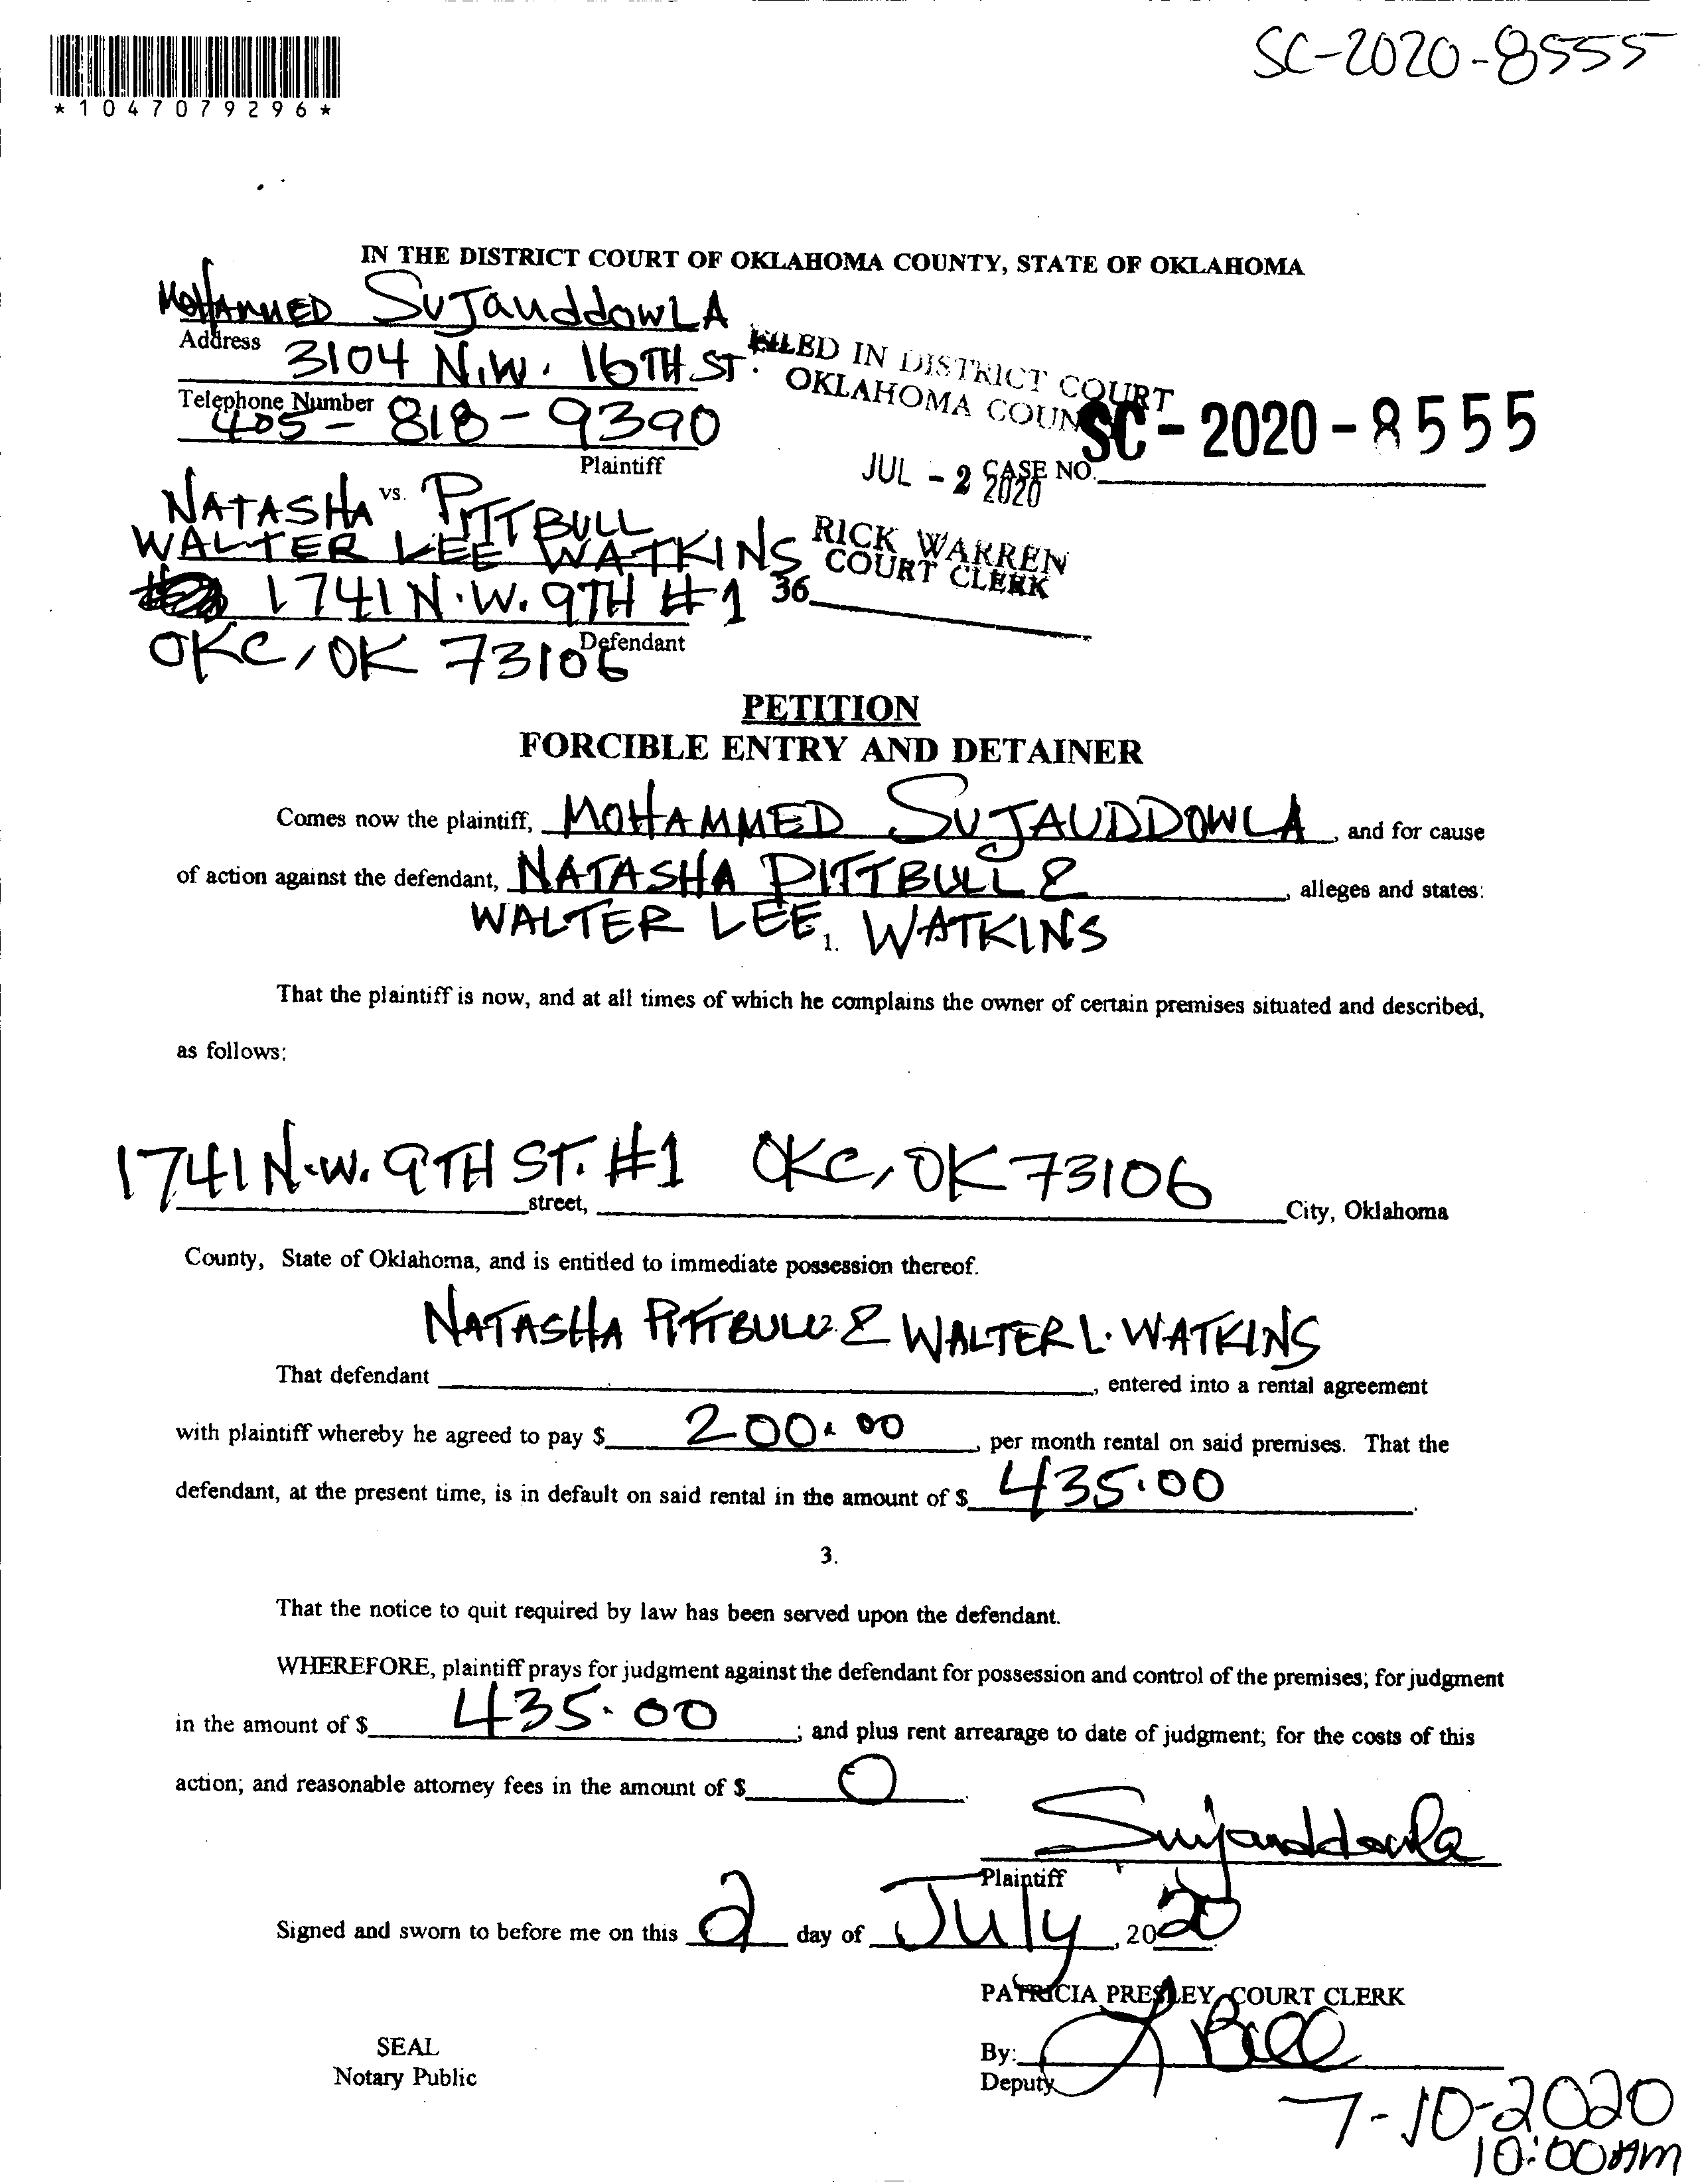 SC-2020-8555
*1047079296*
IN THE DISTRICT COURT OF OKLAHOMA COUNTY, STATE OF OKLAHOMA
MOHAMMED SUJAUDDOWLA
Address 3104 N.W. 16TH ST.
FILED IN DISTRICT COURT
OKLAHOMA COUN
Telephone Number 405-818-9390
SC-2020-8555
Plaintiff
JUL - 2 2020
CASE NO.
vs.
NATASHA PITTBULL
WALTER LEE WATKINS
RICK WARREN
COURT CLERK
1741 N.W. 9TH #1
36
Defendant
OKC, OK 73106
PETITION
FORCIBLE ENTRY AND DETAINER
Comes now the plaintiff, MOHAMMED SUJAUDDOWLA, and for cause
of action against the defendant, NATASHA PITTBULL &, alleges and states:
WALTER LEE, WATKINS
1.
That the plaintiff is now, and at all times of which he complains the owner of certain premises situated and described,
as follows:
1741 N.W. 9TH ST. #1 OKC, OK 73106
street, City, Oklahoma
County, State of Oklahoma, and is entitled to immediate possession thereof.
NATASHA PITTBULL & WALTER L. WATKINS
That defendant, entered into a rental agreement
with plaintiff whereby he agreed to pay $ 200.00, per month rental on said premises. That the
defendant, at the present time, is in default on said rental in the amount of $ 435.00.
3.
That the notice to quit required by law has been served upon the defendant.
WHEREFORE, plaintiff prays for judgment against the defendant for possession and control of the premises; for judgment
in the amount of $ 435.00; and plus rent arrearage to date of judgment; for the costs of this
action; and reasonable attorney fees in the amount of $ 0.
Sujauddowla
Plaintiff
Signed and sworn to before me on this 2 day of July, 2020
PATRICIA PRESLEY, COURT CLERK
SEAL
Notary Public
By:
Deputy
7-10-2020
10:00AM